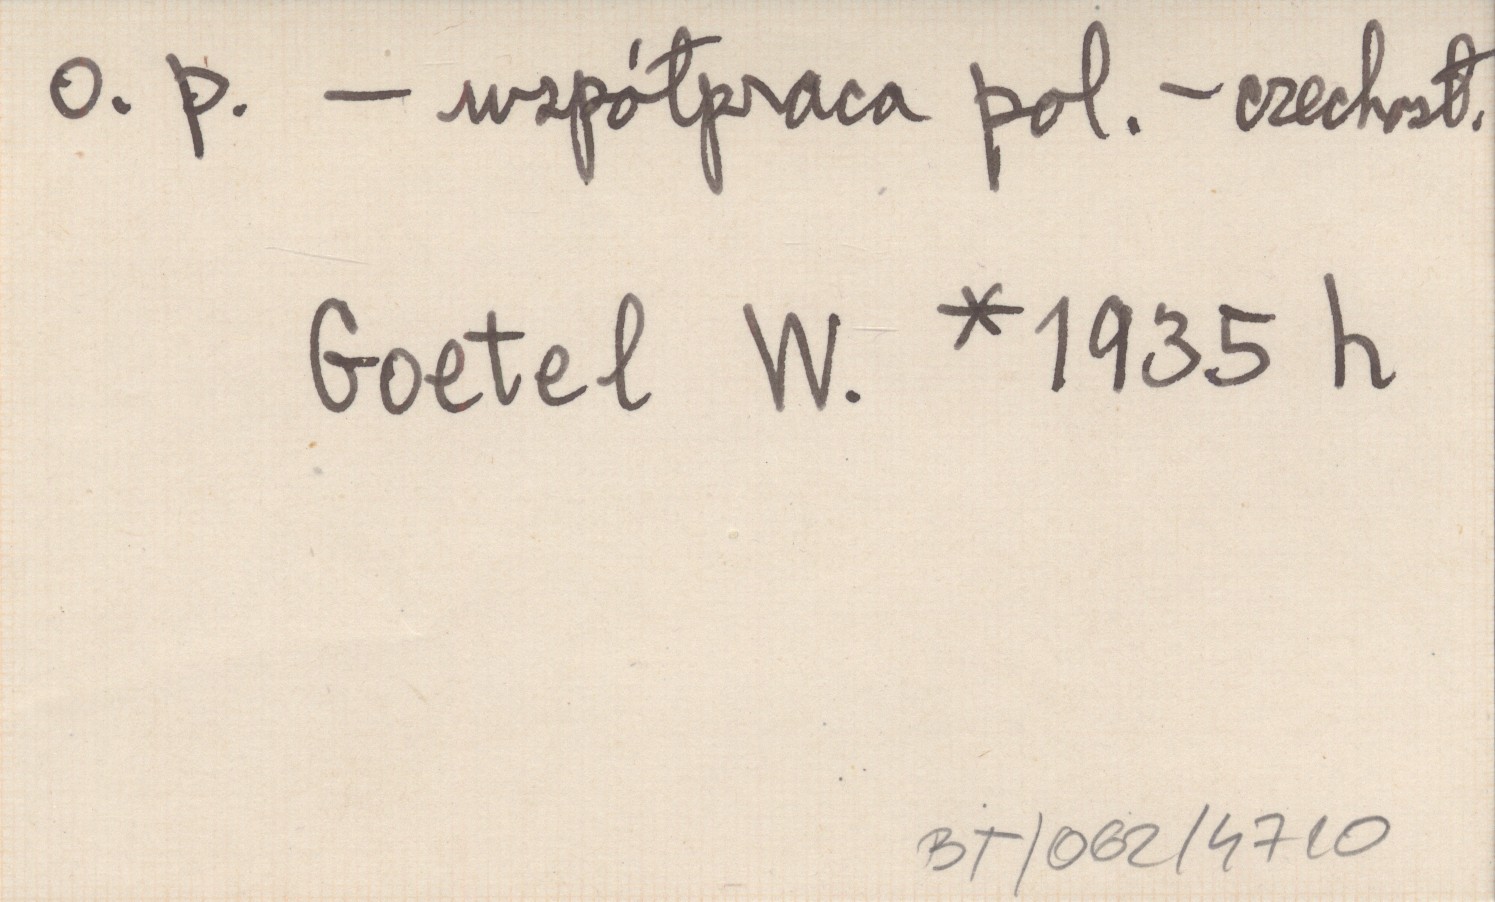 o. p. — współpraca pol. – czechosł.
Goetel W. *1935 h
BT/062/4710